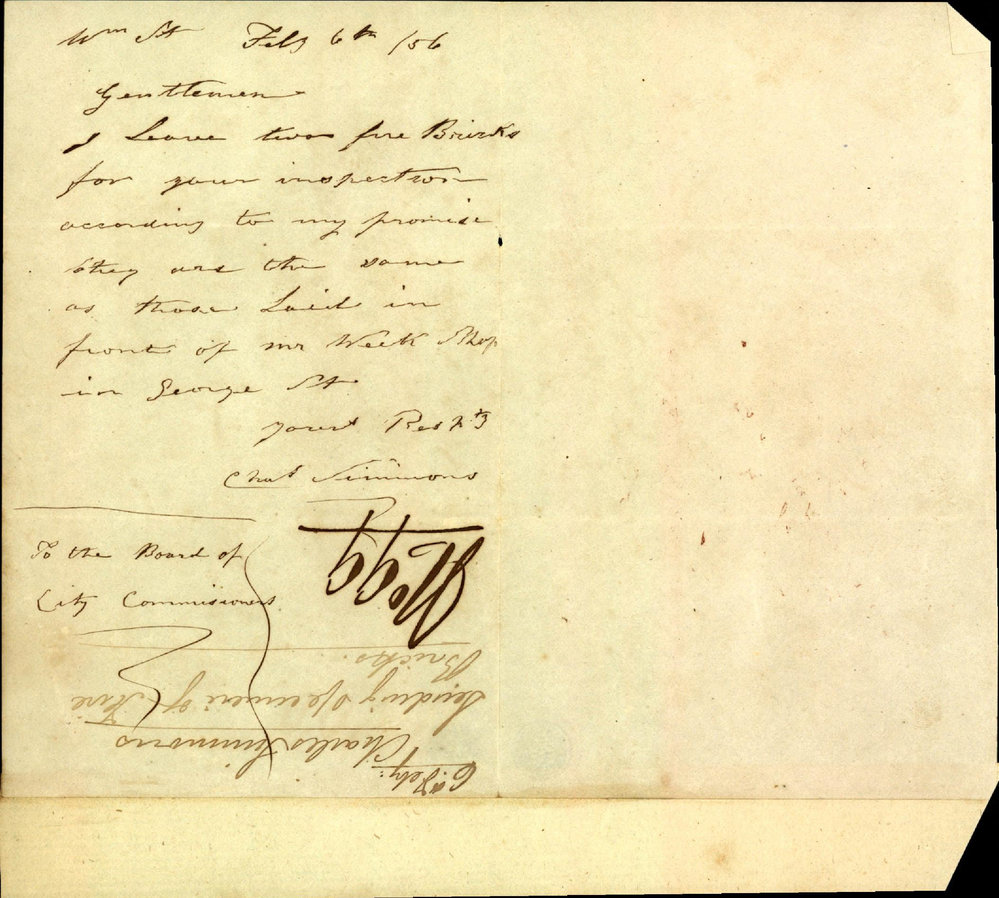 Wm St Feby 6th /56
Gentlemen
I Leave two fire Bricks
for your inspection
according to my promise
they are the same
as those Laid in
front of mr Week Shop
in George St
yours Respty
Chas Simmons
To the Board of
City Commissioners
No 99
6th Feby:
Charles Simmons
Sending Specimens of Fire
Bricks.